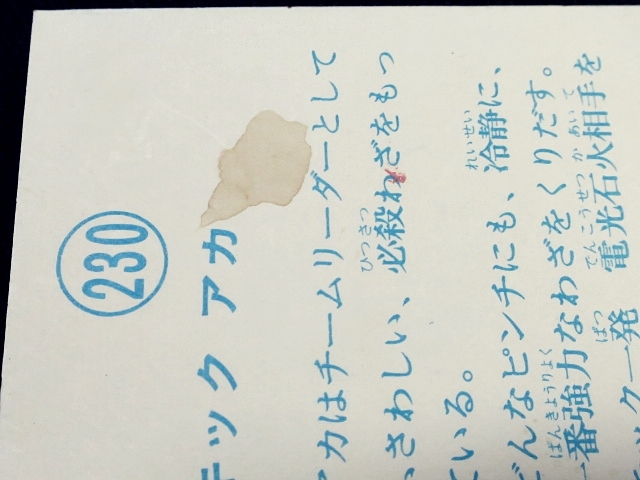 230
ック アカ
カはチームリーダーとして
さわしい、必殺わざをもっ
ている。
どんなピンチにも、冷静に、
一番強力なわざをくりだす。
ック一発電光石火相手を